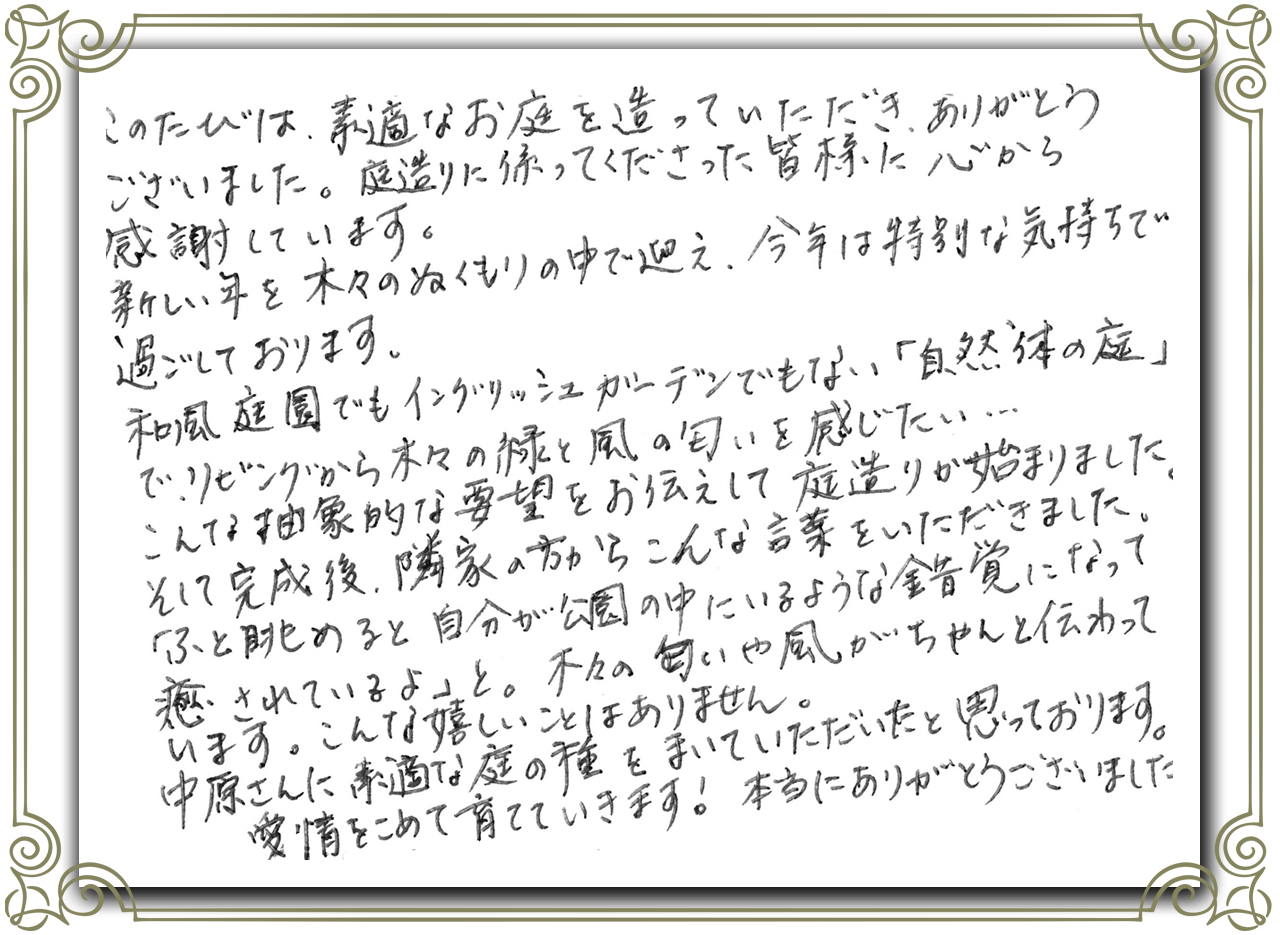 このたびは、素適なお庭を造っていただき、ありがとう
ございました。庭造りに係ってくださった皆様に心から
感謝しています。
新しい年を木々のぬくもりの中で迎え、今年は特別な気持ちで
過ごしております。
和風庭園でもイングリッシュガーデンでもない「自然体の庭」
で、リビングから木々の緑と風の匂いを感じたい…
こんな抽象的な要望をお伝えして庭造りが始まりました。
そして完成後、隣家の方からこんな言葉をいただきました。
「ふと眺めると自分が公園の中にいるような錯覚になって
癒されているよ」と。木々の匂いや風がちゃんと伝わって
います。こんな嬉しいことはありません。
中原さんに素適な庭の種をまいていただいたと思っております。
愛情をこめて育てていきます！本当にありがとうございました